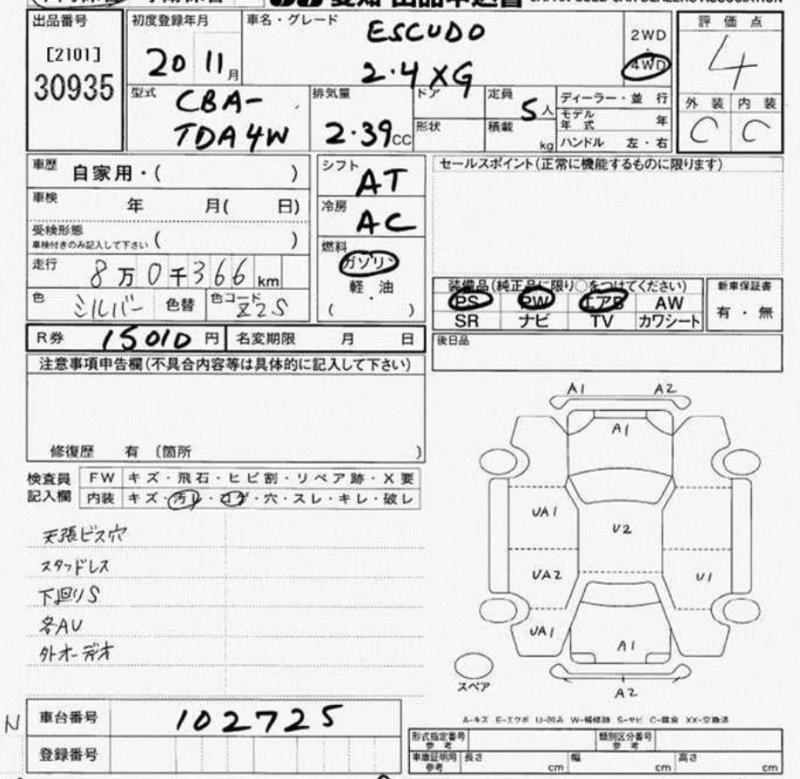 出品番号
[2101]
30935
初度登録年月
20 11月
車名・グレード
ESCUDO
2.4 XG
2WD
・
4WD
評価点
4
外装 内装
C C
型式
CBA-
TDA4W
排気量
2.39cc
ドア
形状
定員
5人
積載
kg
ディーラー・並行
モデル年式 年
ハンドル 左・右
車歴 自家用・( )
車検 年 月( 日)
受検形態
車検付きのみ記入して下さい ( )
走行 8万0千366km
色 シルバー 色替 色コード Z2S
シフト
AT
冷房
AC
燃料
ガソリン
軽油
・
( )
セールスポイント(正常に機能するものに限ります)
装備品(純正品に限り○をつけてください)
PS PW エアB AW
SR ナビ TV カワシート
新車保証書
有・無
後日品
R券 15010円 名変期限 月 日
注意事項申告欄(不具合内容等は具体的に記入して下さい)
修復歴 有 〔箇所 〕
検査員 記入欄
FW キズ・飛石・ヒビ割・リペア跡・X要
内装 キズ・汚レ・コゲ・穴・スレ・キレ・破レ
天張ビス穴
スタッドレス
下回りS
各AU
外オーディオ
A1 A2
A1
UA1
U2
UA2 U1
UA1 A1
スペア
A2
A-キズ E-エクボ U-凹み W-補修跡 S-サビ C-腐食 XX-交換済
N
車台番号 102725
登録番号
形式指定番号 参考
類別区分番号 参考
車庫証明用 参考 長さ cm 幅 cm 高さ cm